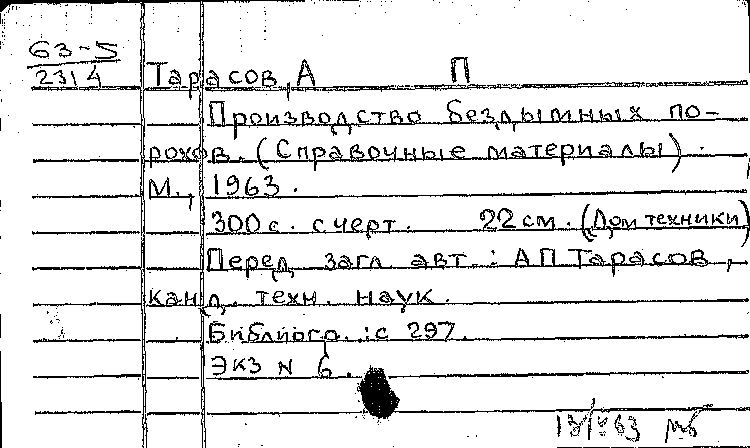 63-5
2314
Тарасов, А П
Производство бездымных по-
рохов. (Справочные материалы).
М., 1963.
300 с. с черт. 22 см. (Дом техники)
Перед загл. авт.: А П Тарасов,
канд. техн. наук.
Библиогр.: с 297.
Экз N 6.